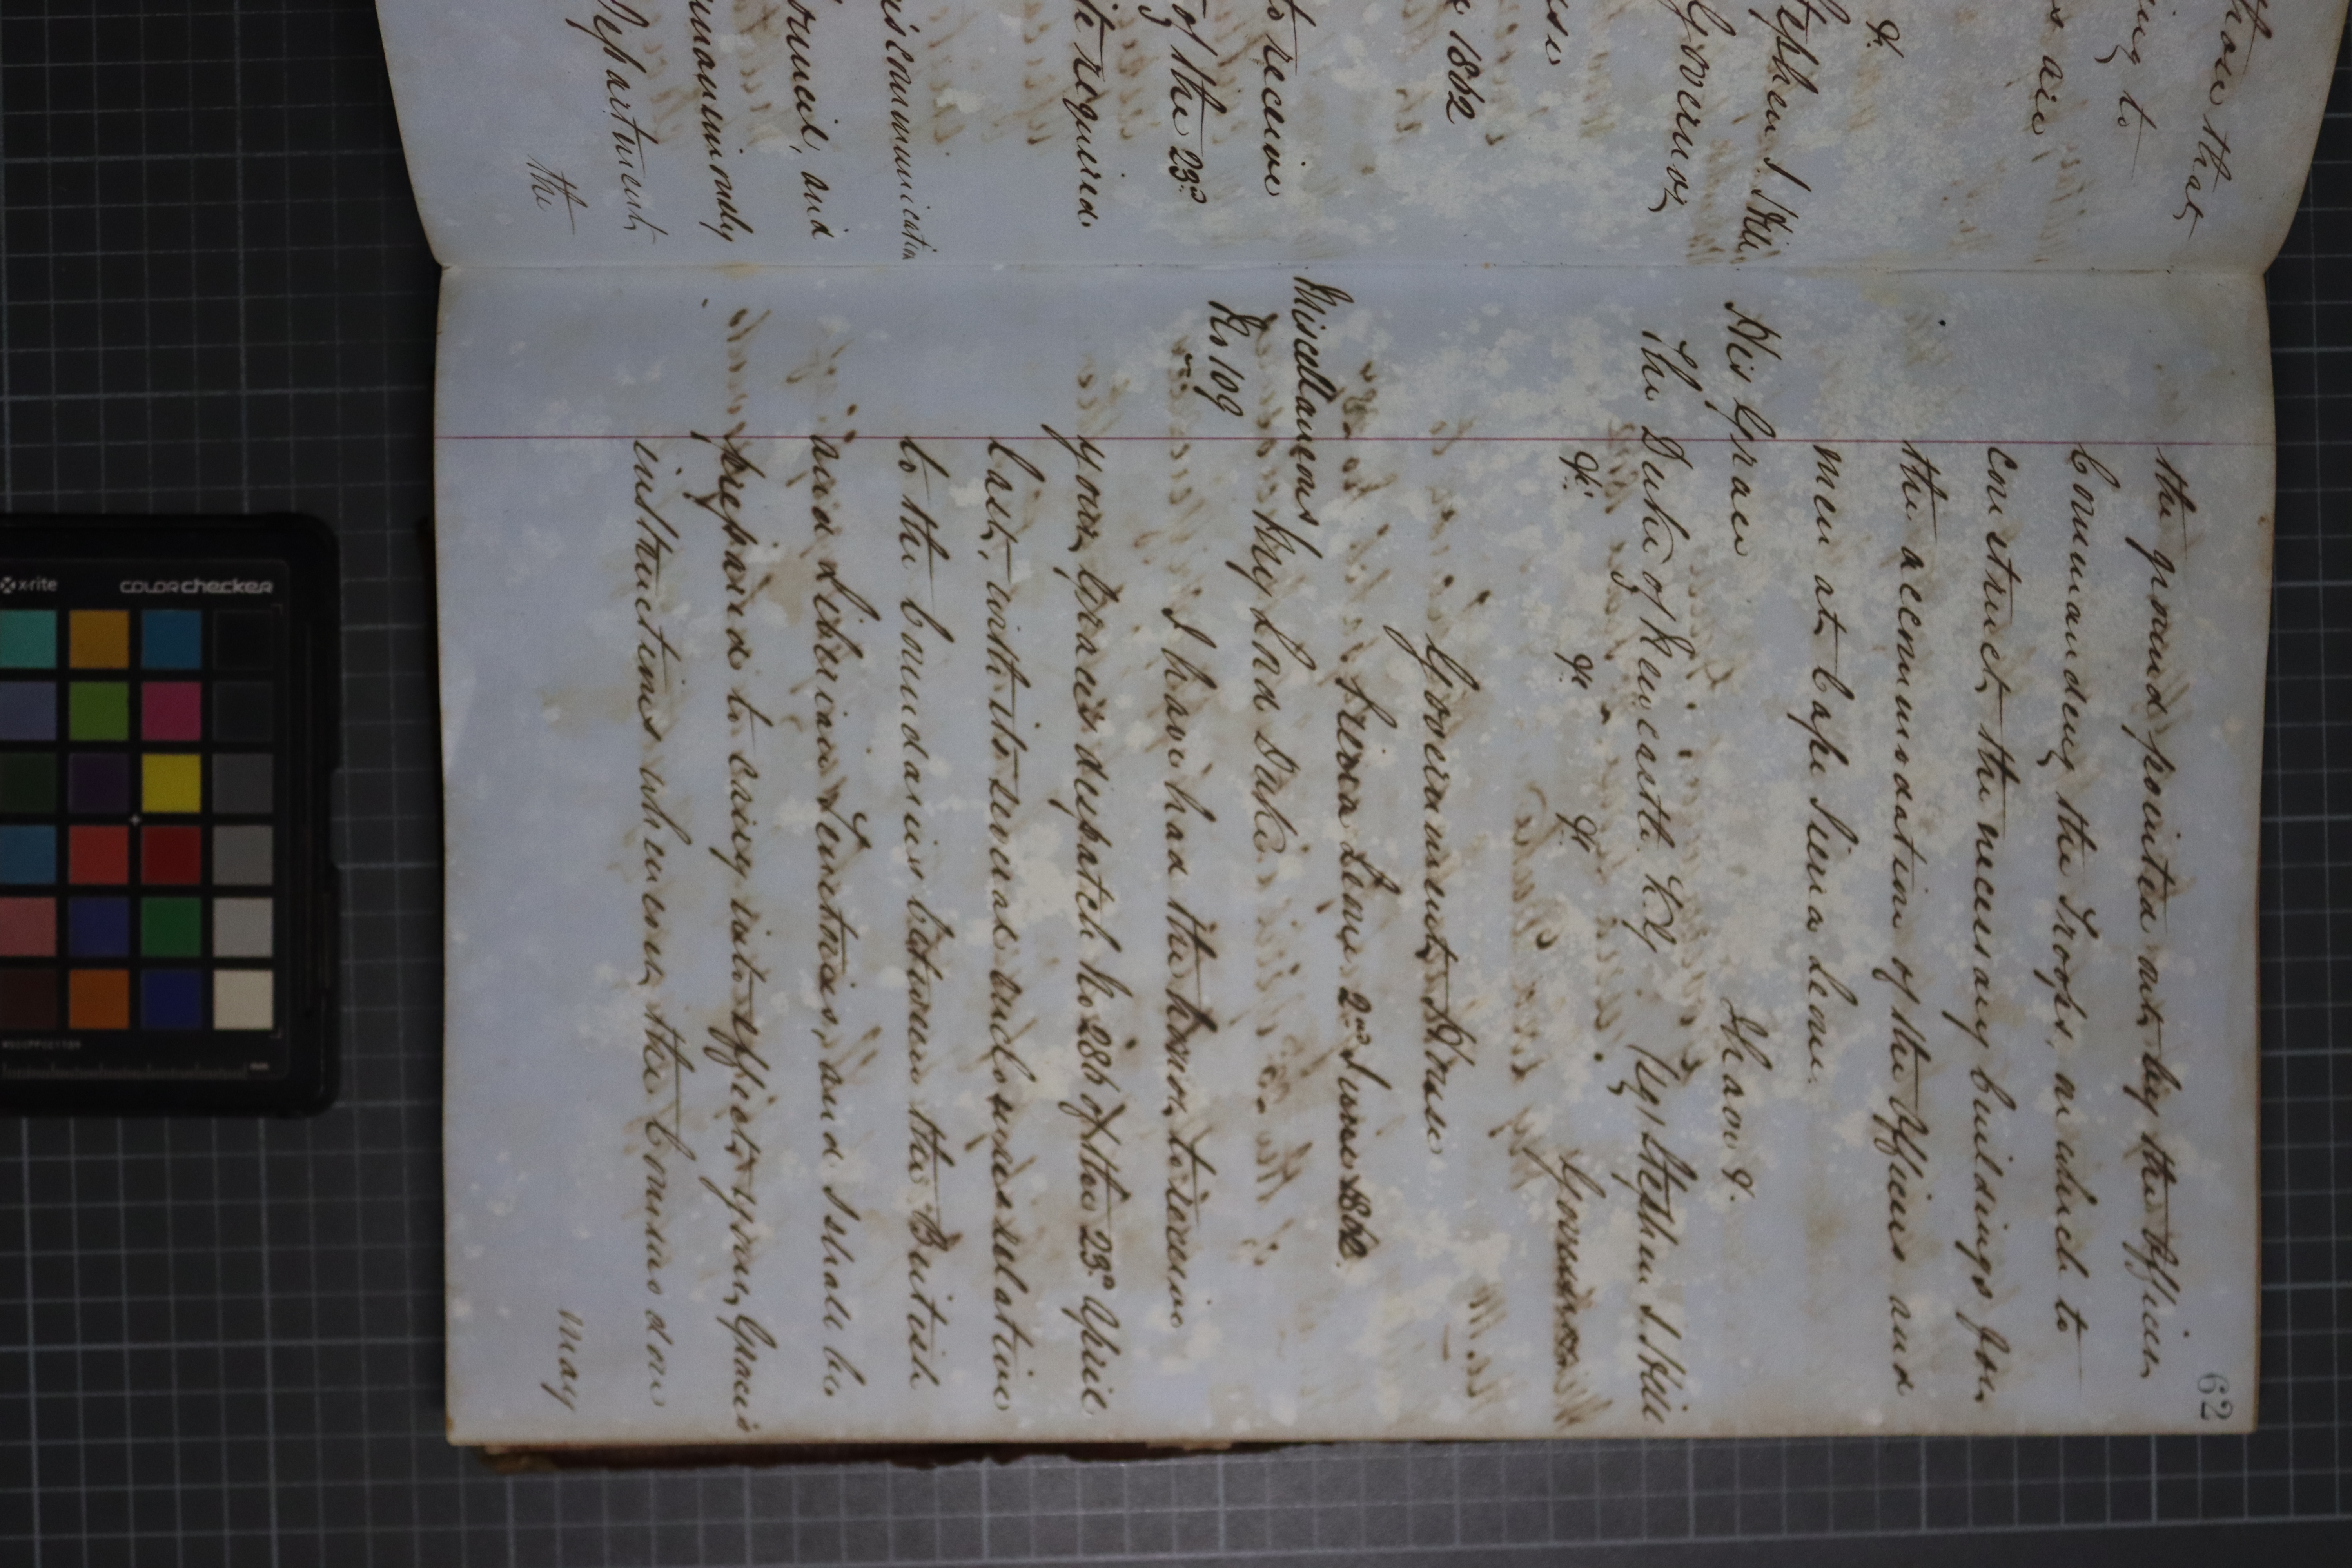 those that
ing to
s are
&c
Stephen J. Hill
Governor
use
e 1862
to receive
of the 23d
it required
iscommunication
ouncil, and
unanimously
Department
the
62
the ground pointed out by the Officer
Commanding the Troops, on which to
construct the necessary buildings for
the accommodation of the Officers and
men at Cape Sierra Leone.
I have &.
His Grace
The Duke of Newcastle K.G. Sg. Stephen J. Hill
&c. &c. &c. Governor
Government House
Sierra Leone 2nd June 1862.
Miscellaneous
My Lord Duke
No 109
I have had the honor to receive
your Graces despatch No 286 of the 23d April
last, with its several enclosures relative
to the boundaries between the British
and Liberian Territories, and I shall be
prepared to carry into effect your Grace's
instructions whenever the Commodore
may
x-rite
colorchecker